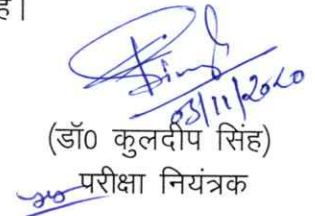 है।
03/11/2020
(डॉ0 कुलदीप सिंह)
परीक्षा नियंत्रक